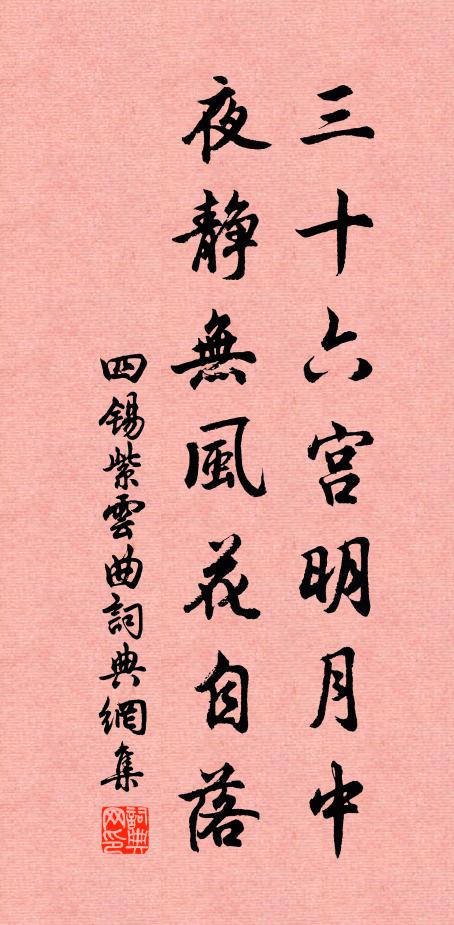 三十六宫明月中
夜静無風花自落
四锡紫雲曲詞典網集
詞典
网印